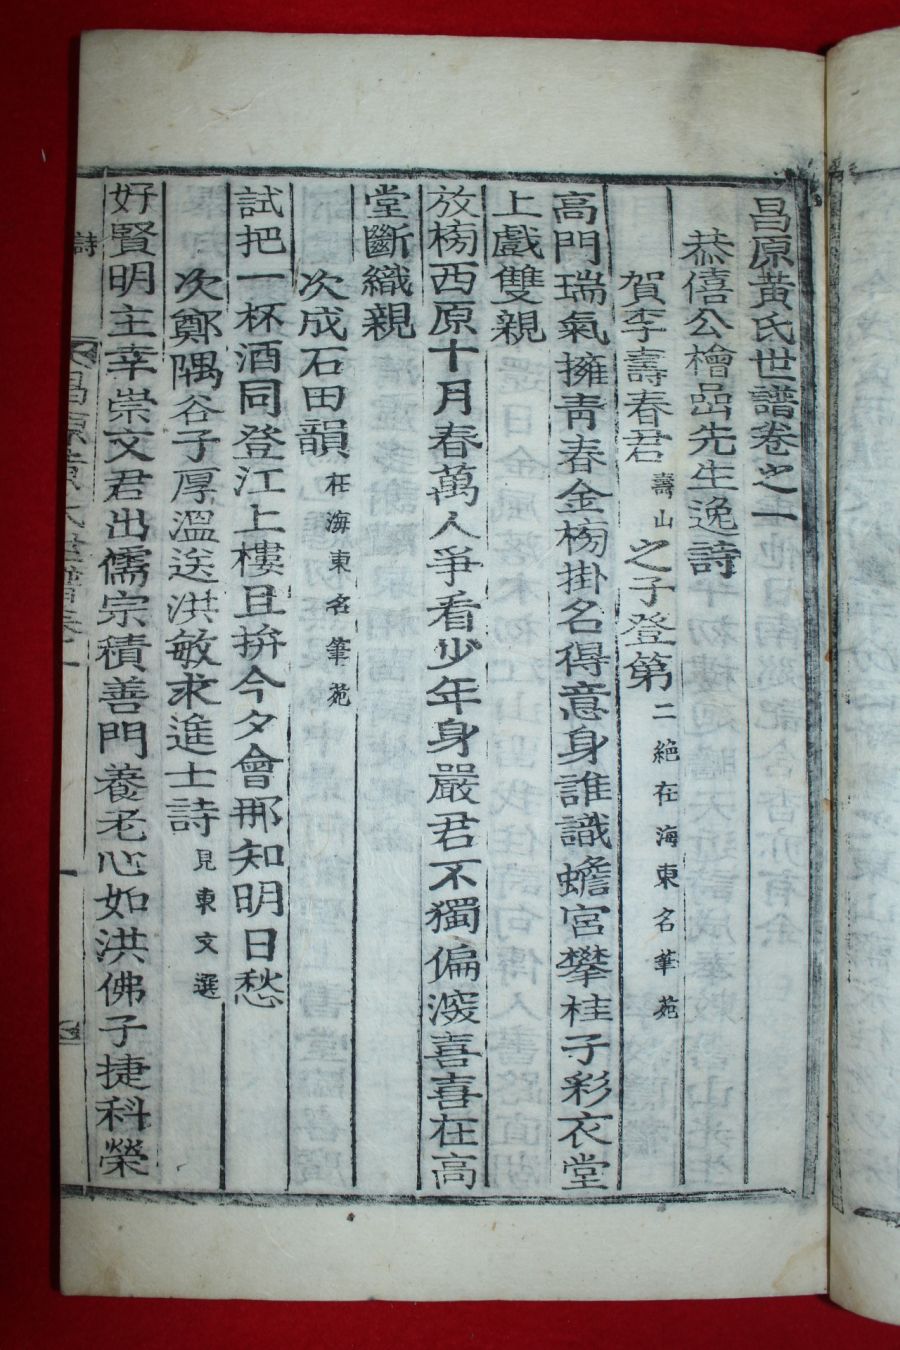 昌原黃氏世譜卷之一
恭僖公檜嵒先生逸詩
賀李壽春君壽山之子登第二絶在海東名筆苑
高門瑞氣擁靑春金榜掛名得意身誰識蟾宮攀桂子彩衣堂
上戲雙親
放榜西原十月春萬人爭看少年身嚴君不獨偏深喜喜在高
堂斷織親
次成石田韻在海東名筆苑
試把一杯酒同登江上樓且拚今夕會那知明日愁
次鄭隅谷子厚溫送洪敏求進士詩見東文選
好賢明主幸崇文君出儒宗積善門養老心如洪佛子捷科榮
詩
昌原黃氏世譜卷之一
一